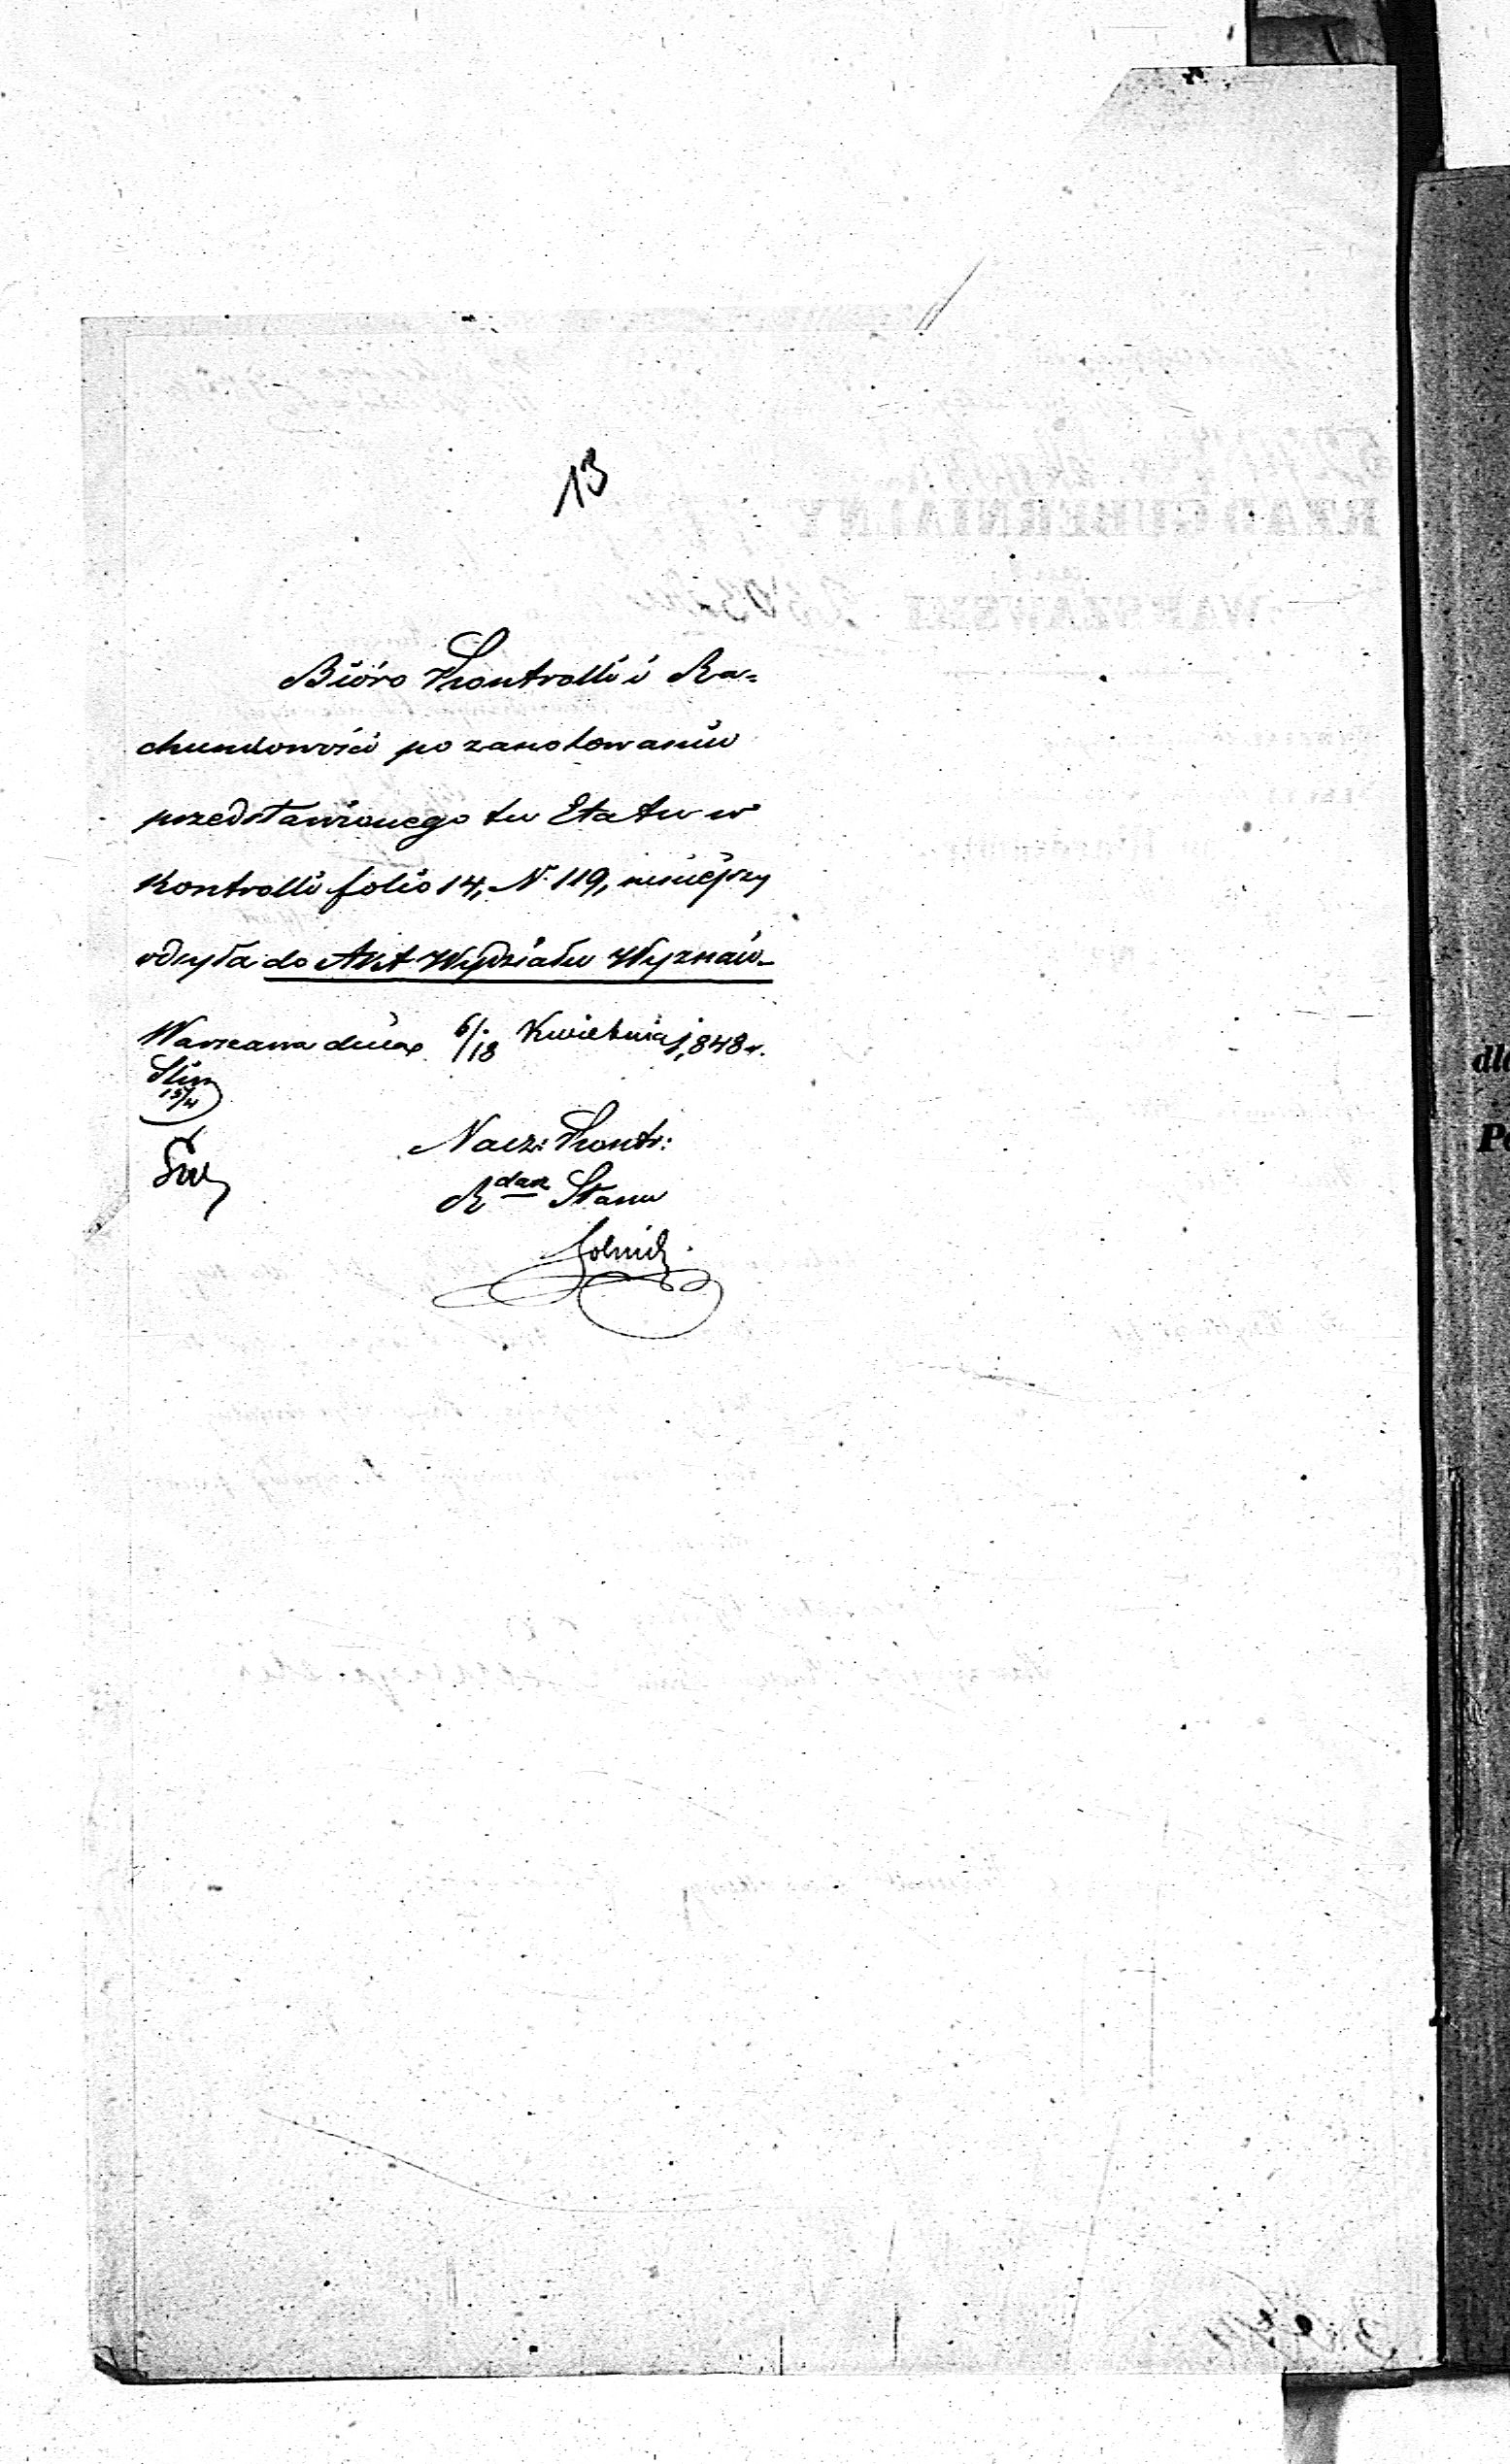 13
Bióro Kontrolli i Ra=
chunkowości po zanotowaniu
przedstawionego tu Etatu w
Kontrolli folio 14, N. 119, niniejszy
odsyła do Akt Wydziału Wyznań.
Warszawa dnia 6/18 Kwietnia 1848 r.
Nacz: Kontr:
R dca Stanu